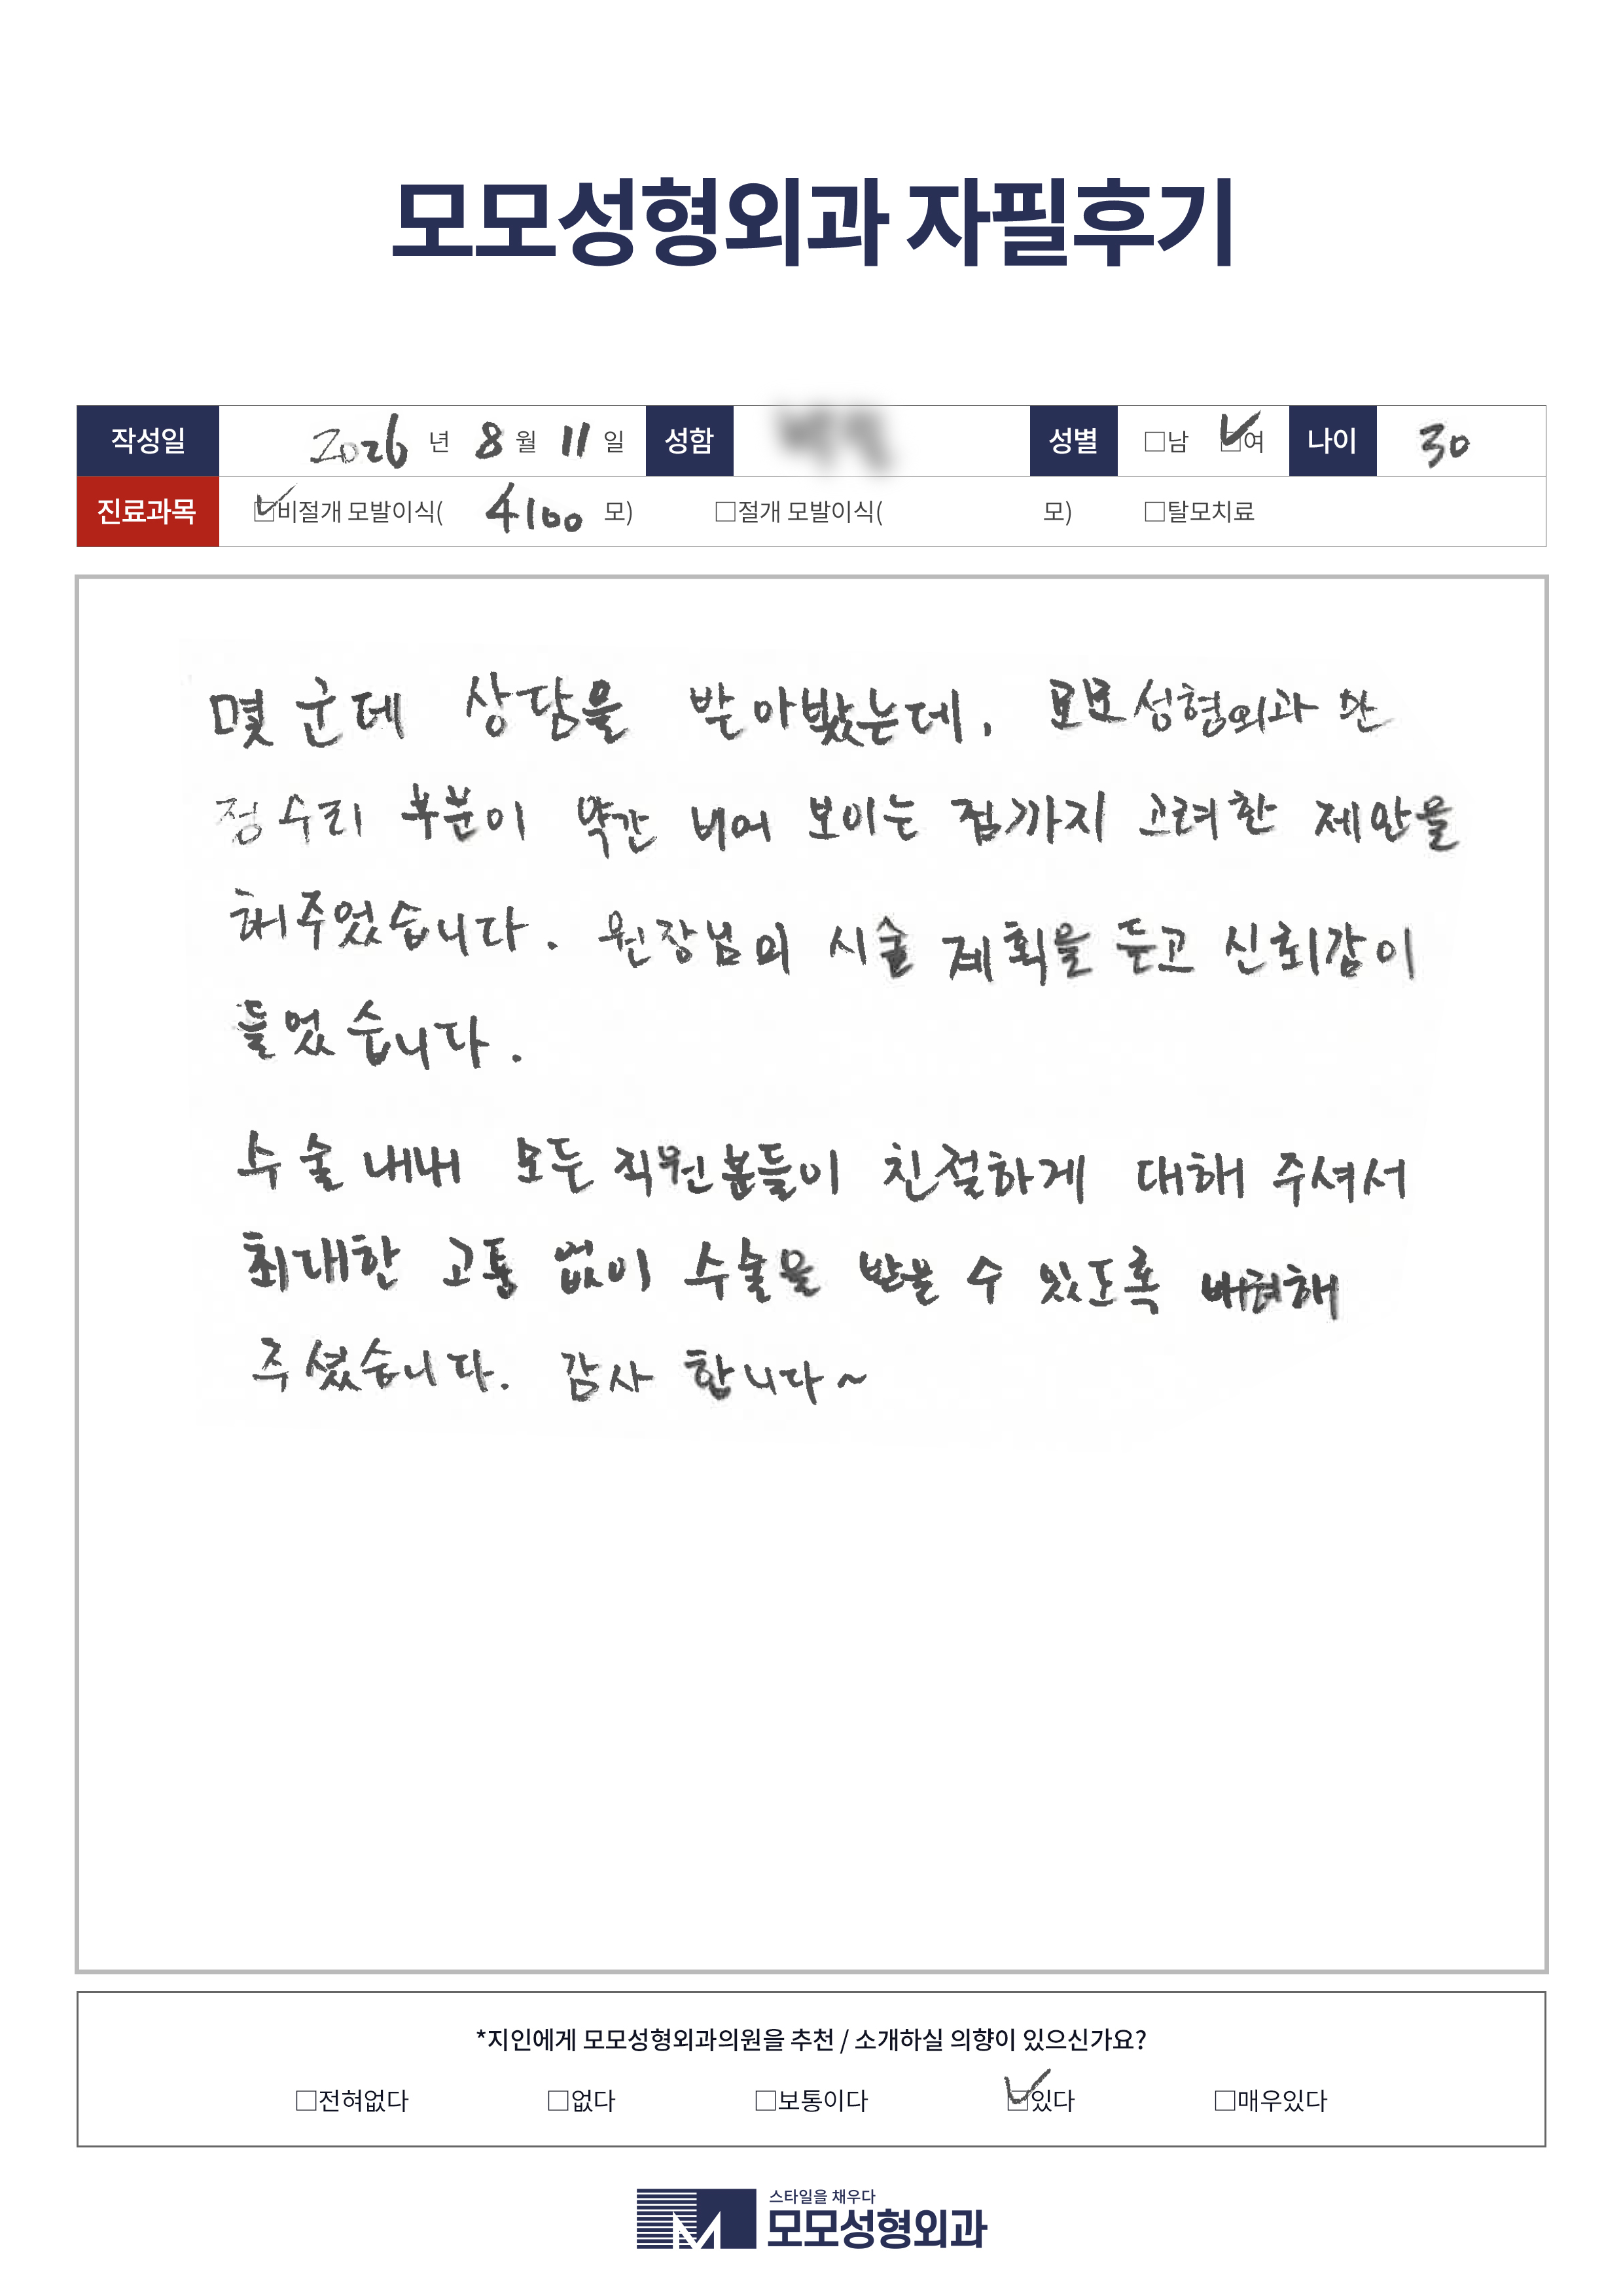 모모성형외과 자필후기
작성일 2026 년 8 월 11 일 성함 성별 □남 ☑여 나이 30
진료과목 ☑비절개 모발이식( 4100 모) □절개 모발이식( 모) □탈모치료
몇 군데 상담을 받아봤는데, 모모성형외과만
정수리 부분이 약간 비어 보이는 점까지 고려한 제안을
해주었습니다. 원장님의 시술 계획을 듣고 신뢰감이
들었습니다.
수술 내내 모든 직원분들이 친절하게 대해 주셔서
최대한 고통 없이 수술을 받을 수 있도록 배려해
주셨습니다. 감사 합니다~
*지인에게 모모성형외과의원을 추천 / 소개하실 의향이 있으신가요?
□전혀없다 □없다 □보통이다 ☑있다 □매우있다
스타일을 채우다
모모성형외과